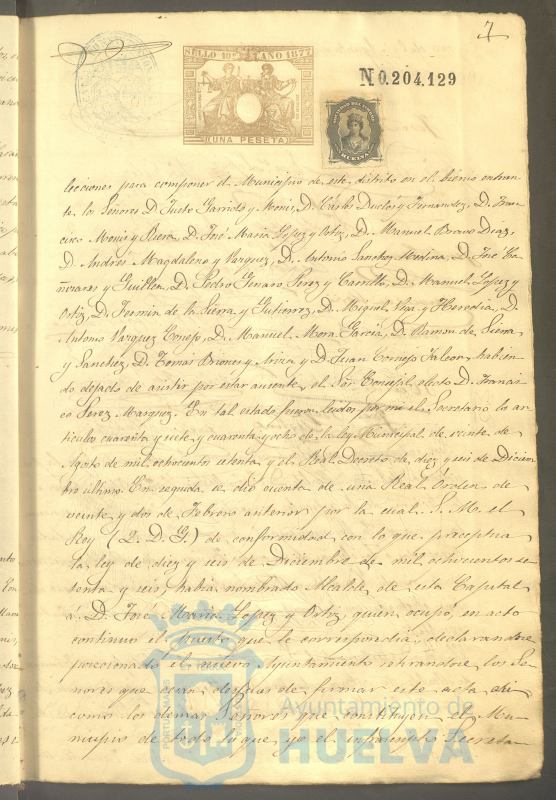 7
SELLO 10º AÑO 1877
UNA PESETA
N 0.204.129
HUELVA
lecciones para componer el Municipio de este distrito en el bienio entran-
te los Señores D. Juste Garrido y Monis, D. Carlos Duclós y Fernandez, D. Fran-
cisco Monis y Riera, D. José Maria Lopez y Ortiz, D. Manuel Bravo Diaz,
D. Andres Magdaleno y Vazquez, D. Antonio Sanchez Medina, D. José Ca-
ñavares y Guillen, D. Pedro Genaro Perez y Carrillo, D. Manuel Lopez y
Ortiz, D. Fermin de la Sierra y Gutierrez, D. Miguel Vega y Heredia, D.
Antonio Vazquez Conejo, D. Manuel Mora Garcia, D. Ramon de Sierra
y Sanchez, D. Tomas Briones y Ariza y D. Juan Cornejo Falcon, habien-
do dejado de asistir por estar ausente, el Sor Concejil electo D. Francis-
co Perez Marquez. En tal estado fueron leidos por mi el Secretario los ar-
ticulos cuarenta y siete, y cuarenta y ocho de la ley Municipal de veinte de
Agosto de mil ochocientos setenta y el Real Decreto de diez y seis de Diciem-
bre ultimo. En seguida se dió cuenta de una Real Orden de
veinte y dos de Febrero anterior por la cual S. M. el
Rey (Q. D. G.) de conformidad con lo que preceptua
la ley de diez y seis de Diciembre de mil ochocientos se-
tenta y seis, habia nombrado Alcalde de esta Capital
á D. José Maria Lopez y Ortiz, quien ocupó, en acto
continuo el puesto que le correspondia, declarandose
posecionado el nuevo Ayuntamiento retirandose los Se-
ñores que eran, despues de firmar esta acta asi
como los demas Señores que constituyen el Mu-
nicipio de todo lo que yo el infrascripto Secreta-
Ayuntamiento de
HUELVA